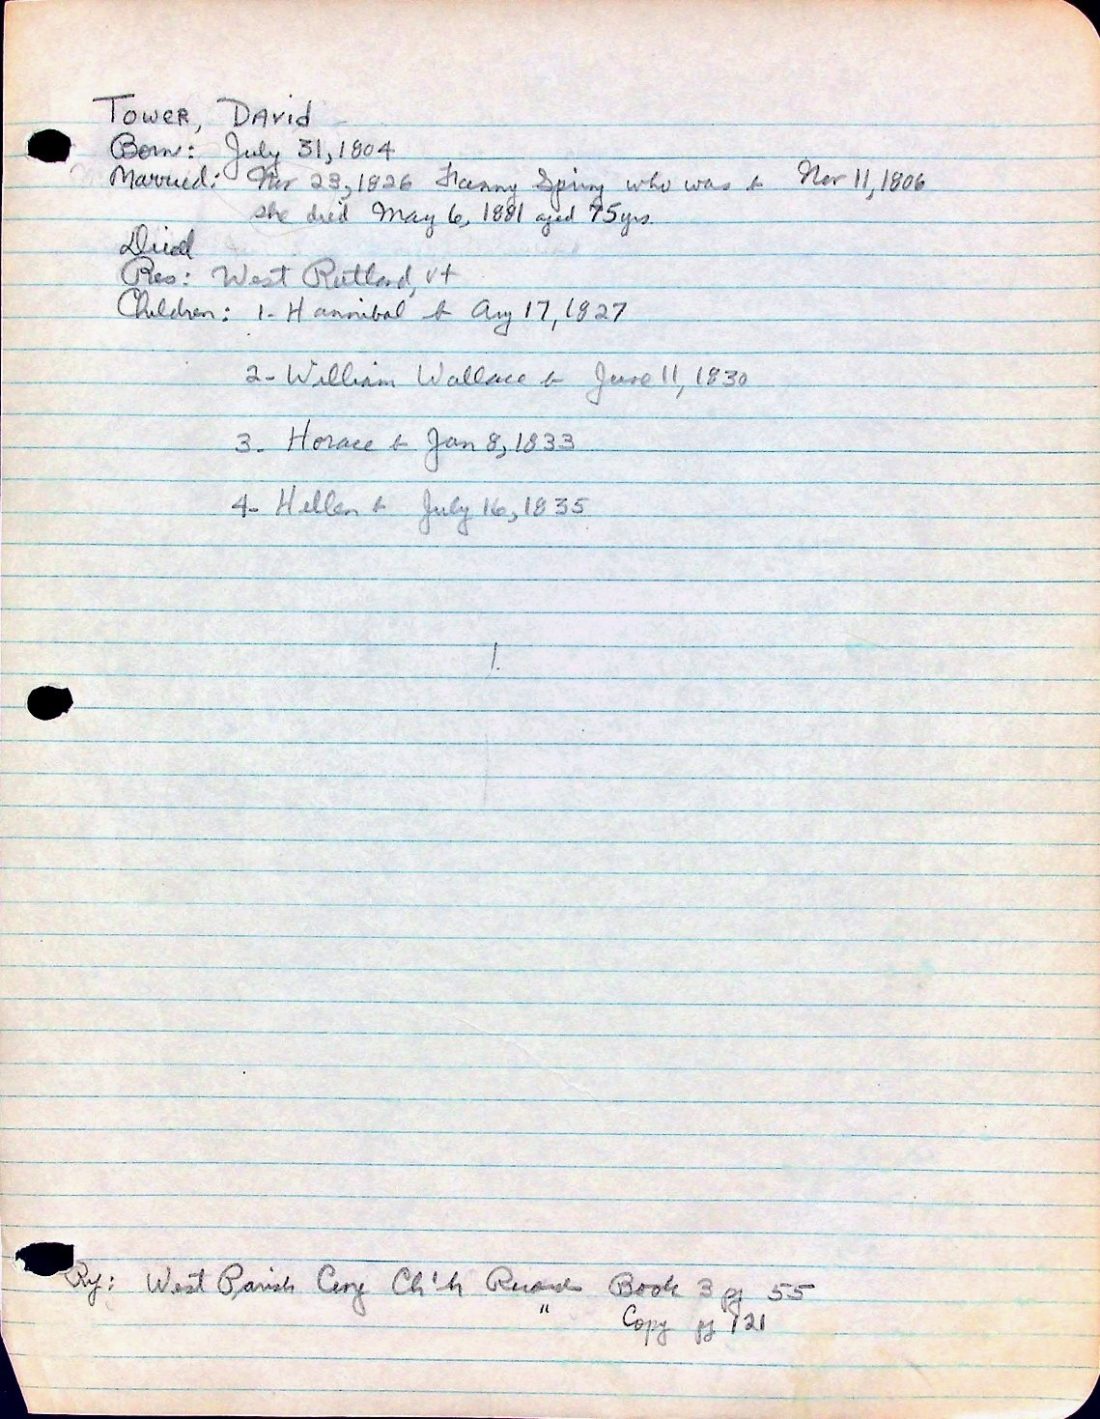 Tower, David
Born: July 31, 1804
Married: Nov 23, 1826 Fanny Spring who was b Nov 11, 1806
she died May 6, 1881 aged 75 yrs.
Died
Res: West Rutland, Vt
Children: 1- Hannibal b Aug 17, 1827
2- William Wallace b June 11, 1830
3- Horace b Jan 8, 1833
4- Hellen b July 16, 1835
1.
Ref: West Parish Cong Ch'h Records Book 3 pg 55
" Copy pg 121